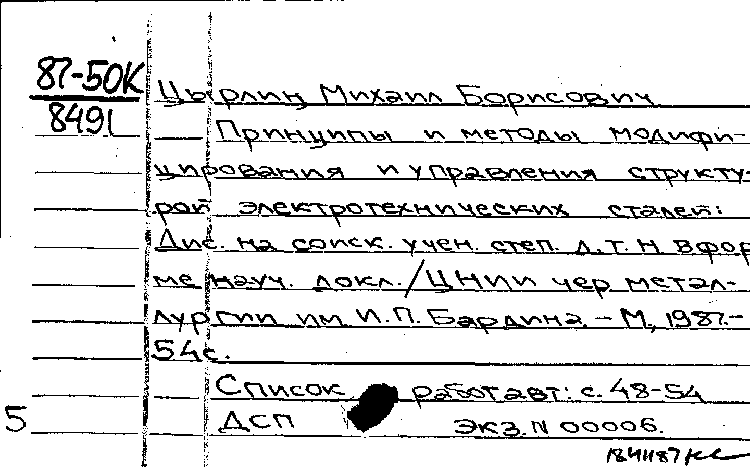 87-50К
8491
Цырлин Михаил Борисович
Принципы и методы модифи-
цирования и управления структу-
рой электротехнических сталей:
Дис. на соиск. учен. степ. д.т.н. в фор
ме науч. докл./ЦНИИ чер метал-
лургии им. И.П. Бардина. - М., 1987.-
54с.
Список работ авт: с. 48-54
5 ДСП Экз. N 00006.